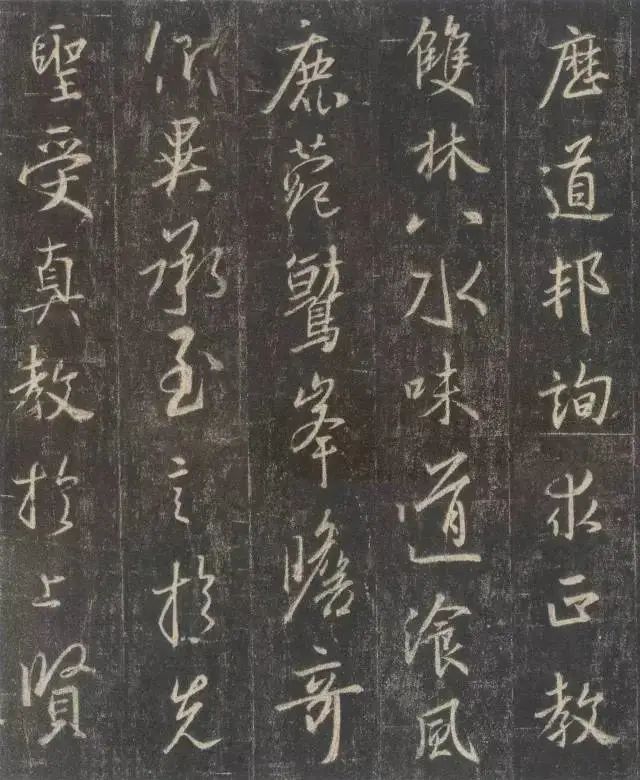 歷道邦詢求正教
雙林八水味道湌風
鹿菀鷲峯瞻奇
仰異承至言於先
聖受真教於上賢